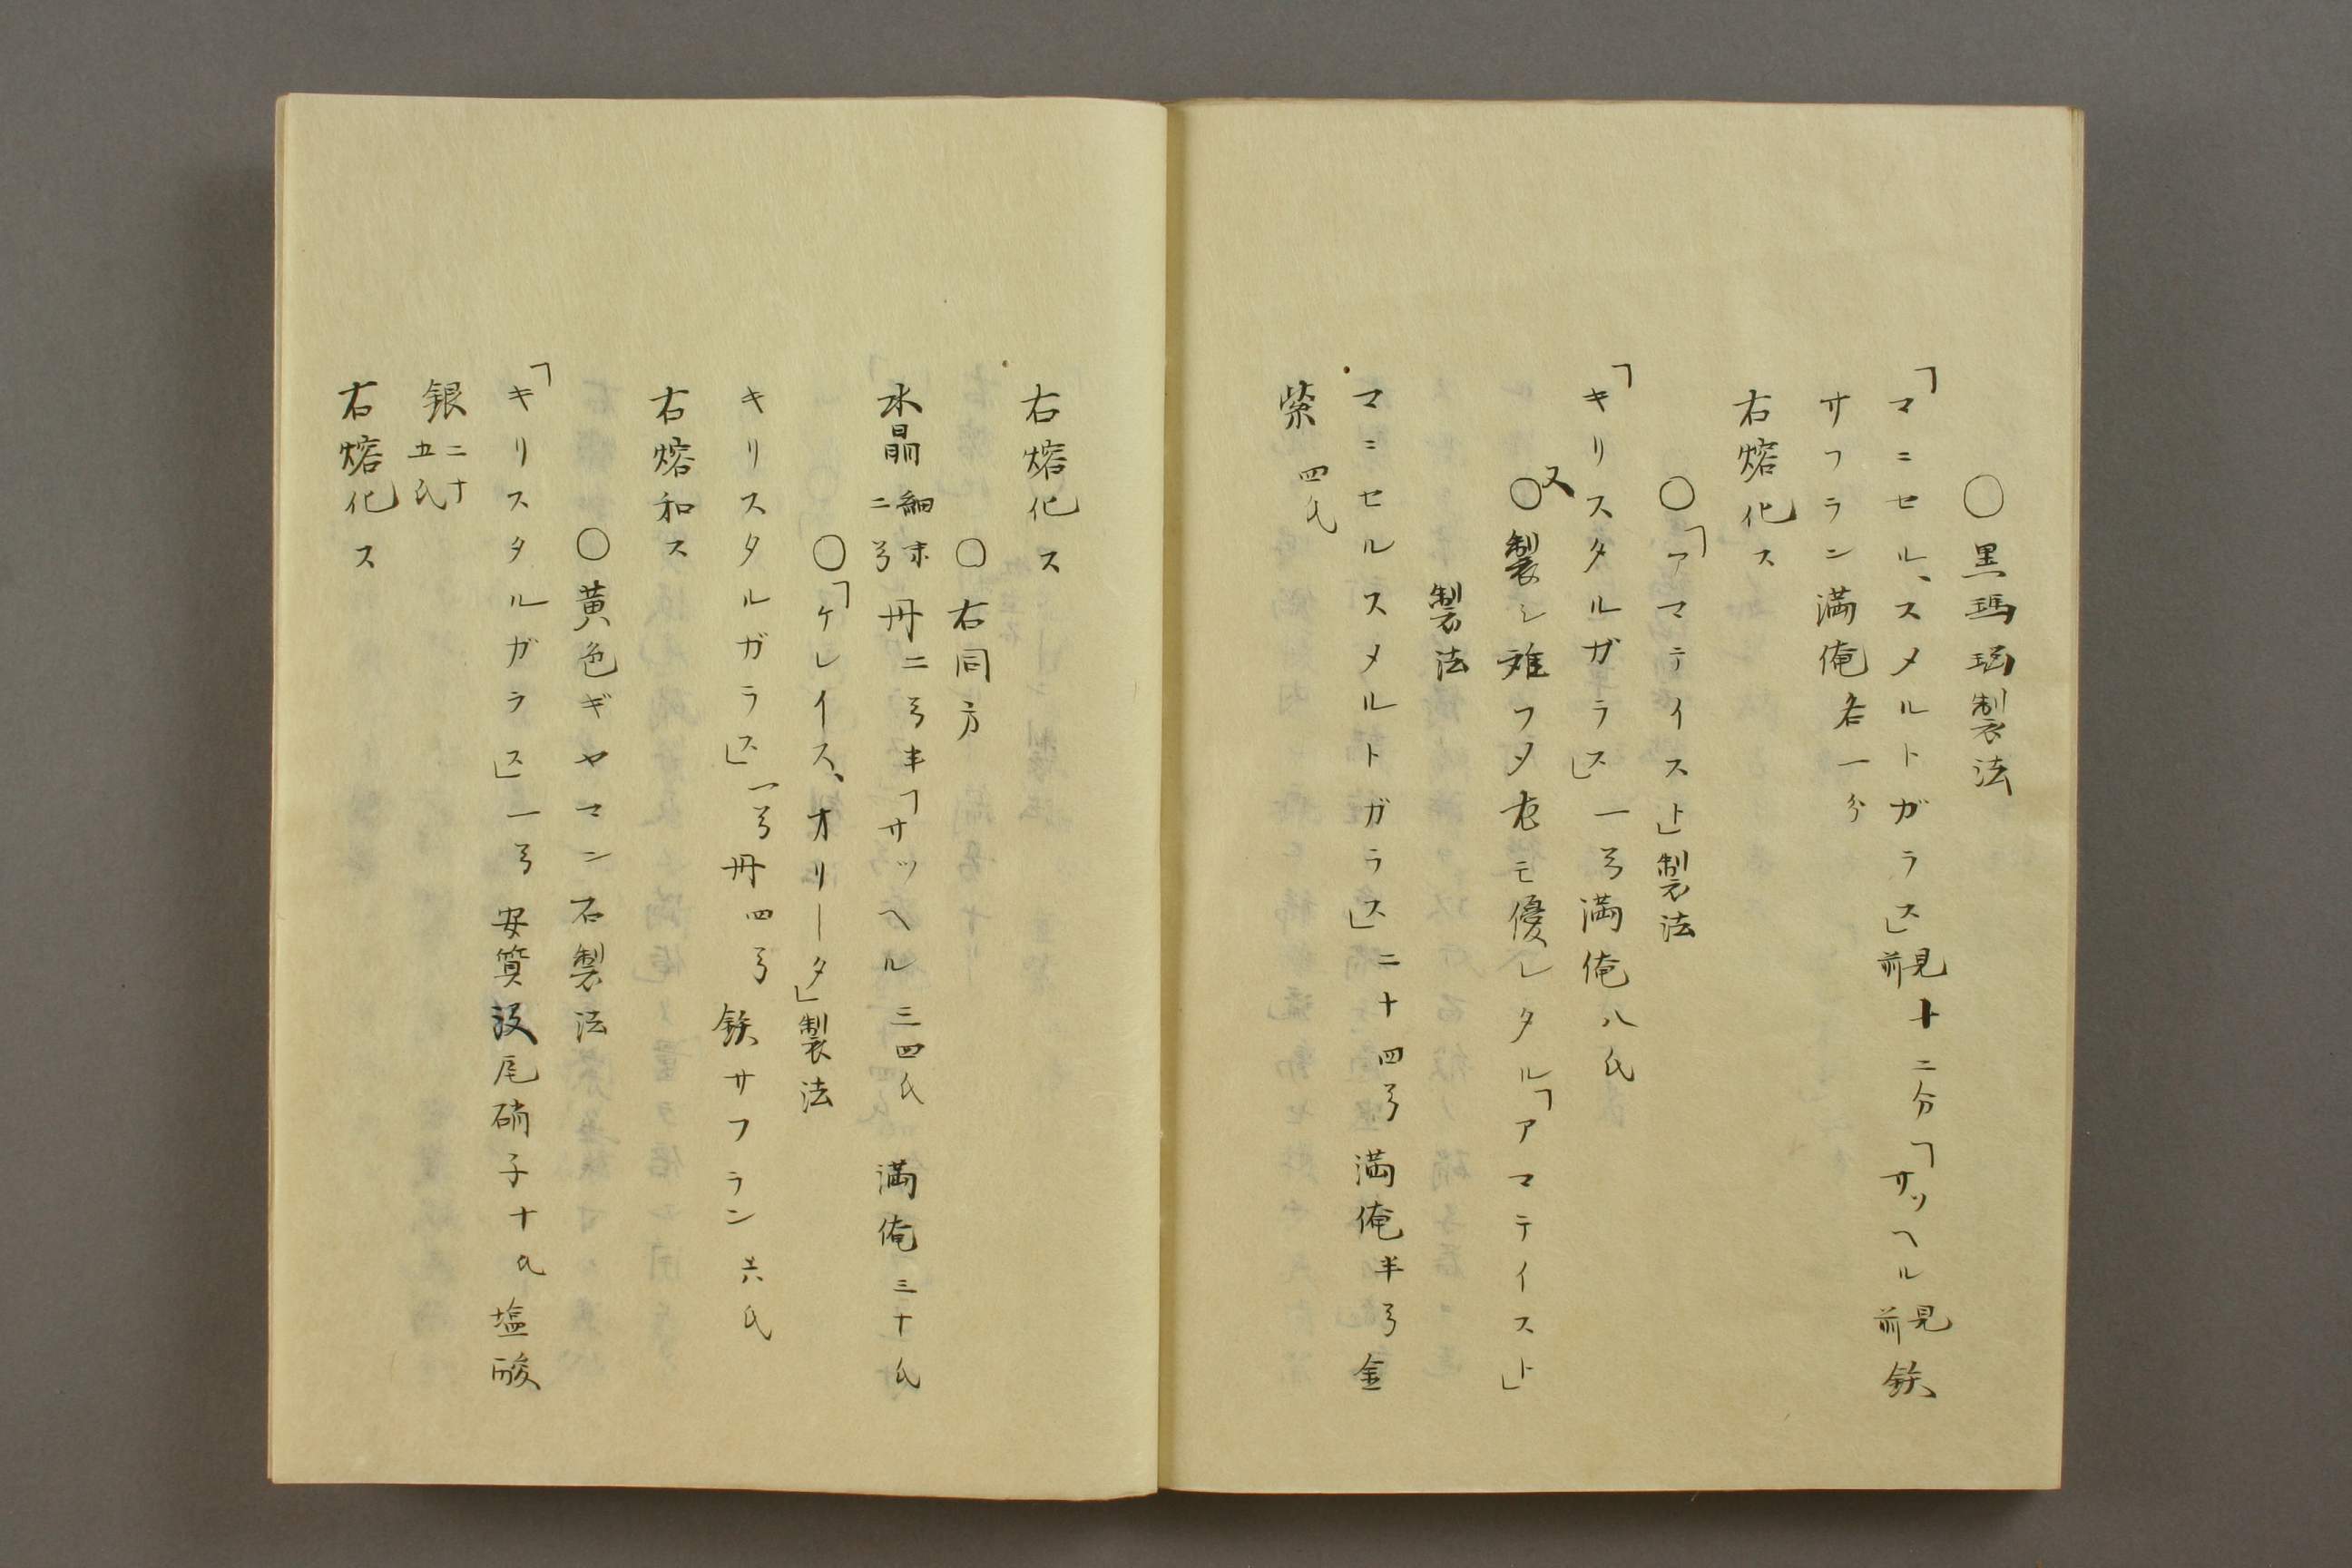 ○黒瑪瑙製法
「マニセル、スメルトガラス」前見十二分「サッヘル前見鉄
サフラン満俺各一分
右熔化ス
○「アマテイスト」製法
「キリスタルガラス」一弓満俺八氏
又
○製シ難フ〆尤モ優レタル「アマテイスト」
製法
マニセルスメルトガラス」二十四弓満俺半弓金
紫四氏
右熔化ス
○右同方
水晶細末二弓丹二弓半「サッヘル三四氏満俺三十氏
○「ケレイス、オリータ」製法
キリスタルガラス」一弓丹四弓鉄サフラン六氏
右熔和ス
○黄色ギヤマン石製法
「キリスタルガラス」一弓安質没尾硝子十氏塩酸
銀二十五氏
右熔化ス